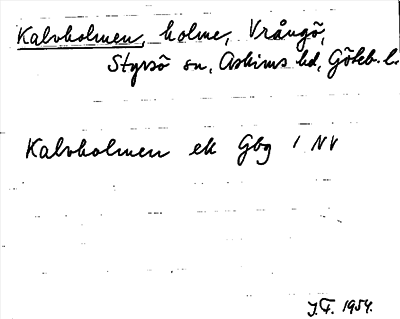 Kalvholmen, holme, Vrångö,
Styrsö sn, Askims hd, Göteb. l.
Kalvholmen ek Gbg 1 NV
J.F. 1954.